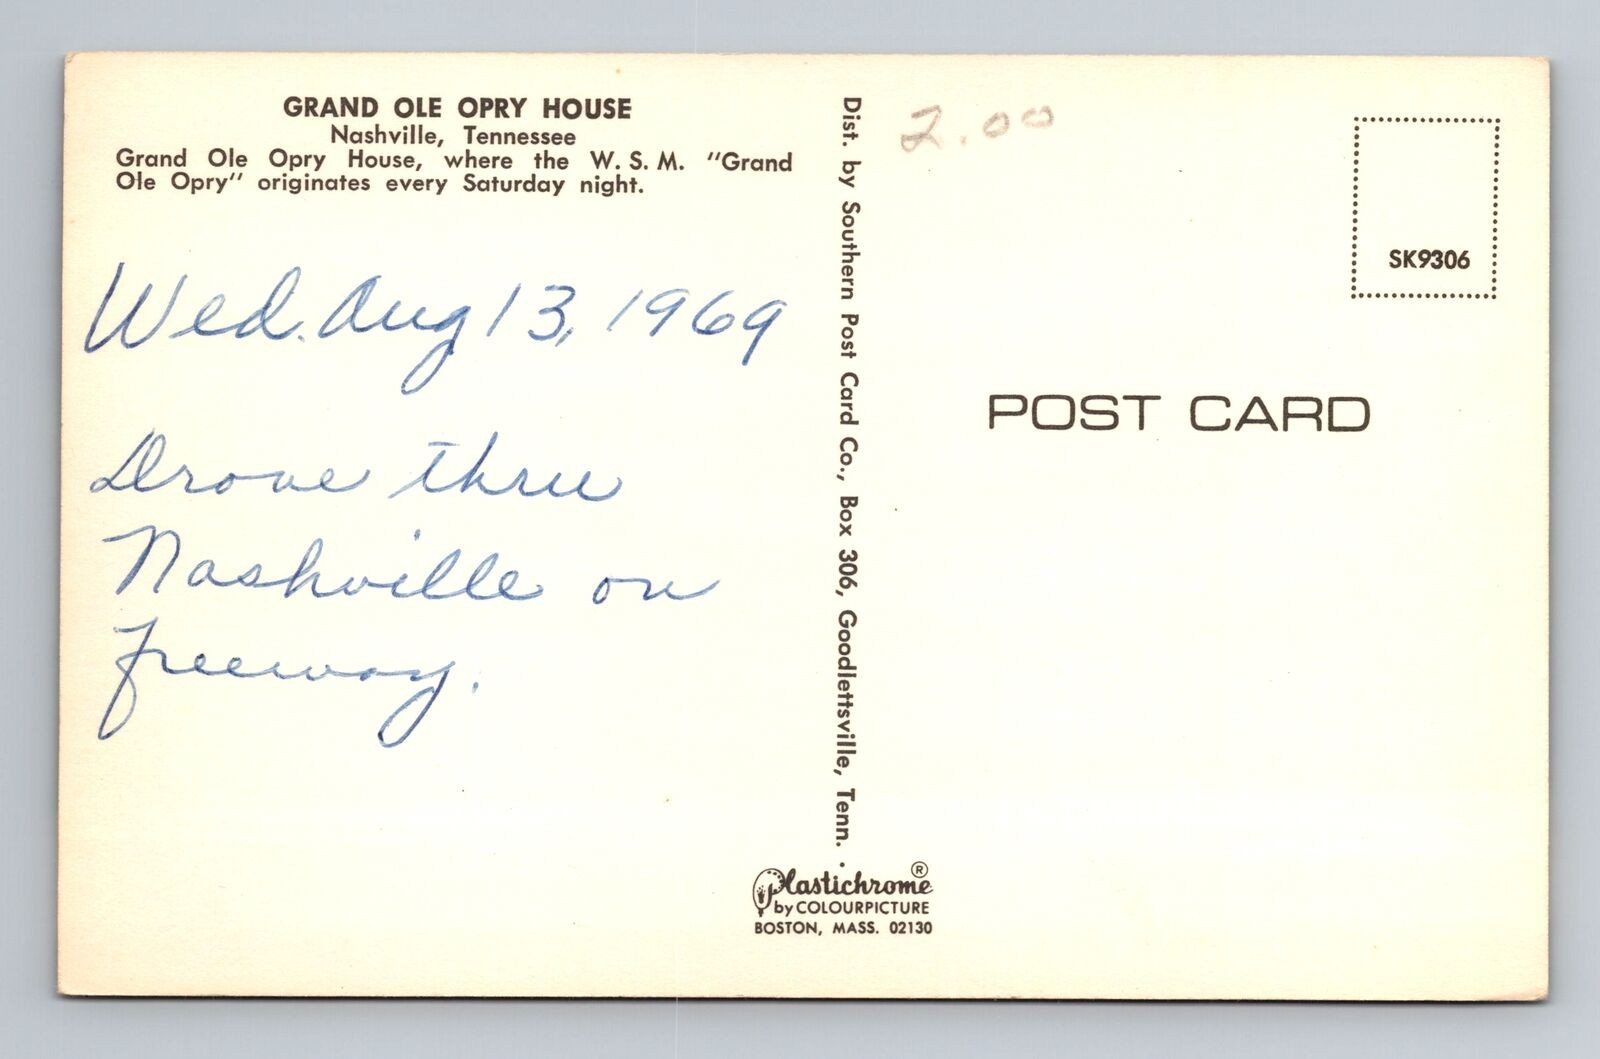 GRAND OLE OPRY HOUSE
Nashville, Tennessee
Grand Ole Opry House, where the W. S. M. "Grand
Ole Opry" originates every Saturday night.
Wed. Aug 13, 1969
Drove thru
Nashville on
freeway.
Dist. by Southern Post Card Co., Box 306, Goodlettsville, Tenn.
Plastichrome®
by COLOURPICTURE
BOSTON, MASS. 02130
2.00
SK9306
POST CARD